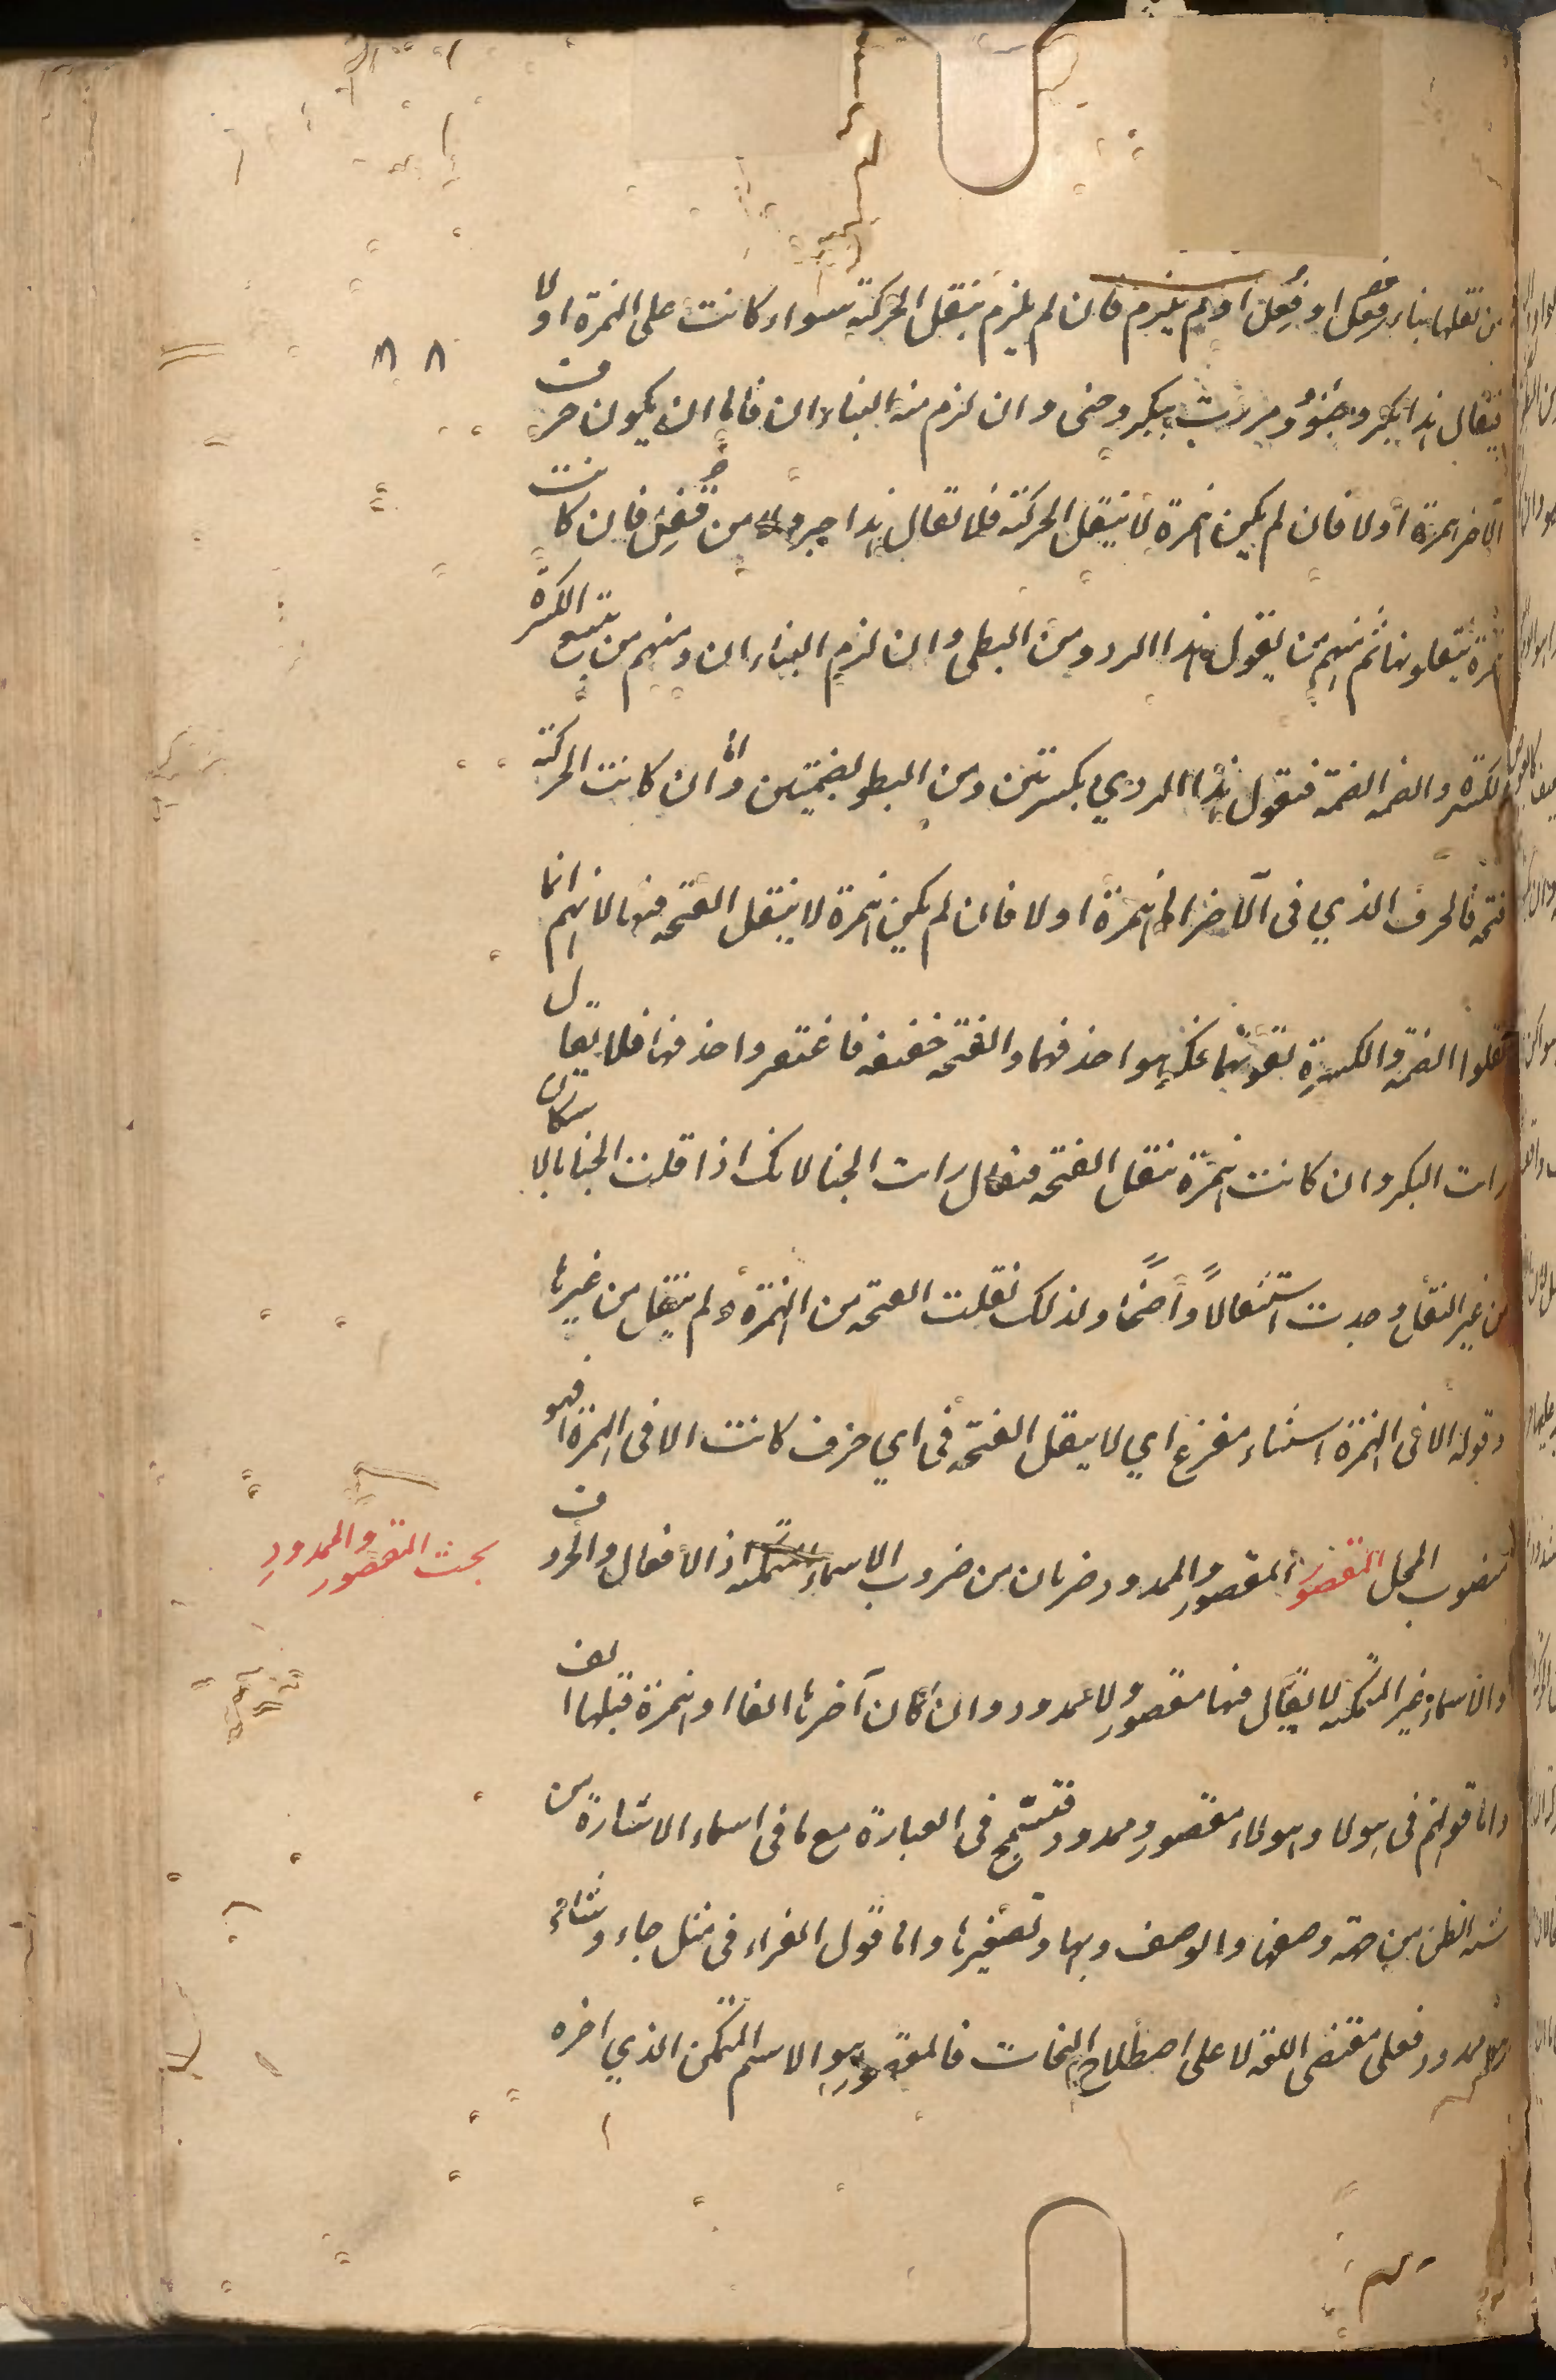 من نقلها بناء فعل او فعل او لم يلزم فان لم يلزم ينقل الحركة سواء كانت على الهمزة او لا
فيقال هذا بكر وخبؤ ومررت ببكر وخبئ وان لزم منه البناء ان فاما ان يكون حرف
الآخر همزة أو لا فان لم يكن همزة لا ينقل الحركة فلا تقال هذا حبر ولا من قفل فان كانت
همزة ينقلونها ثم منهم من يقول هذا الردؤ ومن البطئ وان لزم البناء ان ومنهم من يتبع الكسرة
الكسرة والضمة الضمة فتقول هذا الردي بكسرتين ومن البطو بضمتين وأما ان كانت الحركة
فتحة فالحرف الذي في الآخر اما همزة او لا فان لم يكن همزة لا ينقل الفتحة منها لانهم انما
نقلوا الضمة والكسرة لقوتهما فكرهوا حذفهما والفتحة خفيفة فاغتفر واحذفها فلا يقال
رايت البكر وان كانت همزة تنقل الفتحة فيقال رايت الخبا لانك اذا قلت الخبا بالاسكان
من غير النقل وجدت استثقالاً واضحًا ولذلك نقلت الفتحة من الهمزة ولم ينقل من غيرها
وقوله الا في الهمزة استثناء مفرغ اي لا ينقل الفتحة في اي حرف كانت الا في الهمزة فهو
منصوب المحل المقصور المقصور والممدود ضربان من ضروب الاسماء المتمكنة اذ الأفعال والحروف
بحث المقصور والممدود
والاسماء غير المتمكنة لا يقال فيها مقصور ولا ممدود وان كان آخرها الفا او همزة قبلها الف
واما قولهم في هولا وهولاء مقصور وممدود فتسمح في العبارة مع ما في اسماء الاشارة من
شبه الظن من جهة وصفها والوصف وبها وتصغيرها واما قول القراء في مثل جاء وشاء
ممدود فعلى مقتضى اللغة لا على اصطلاح النحات فالمقصور هو الاسم المتمكن الذي اخره